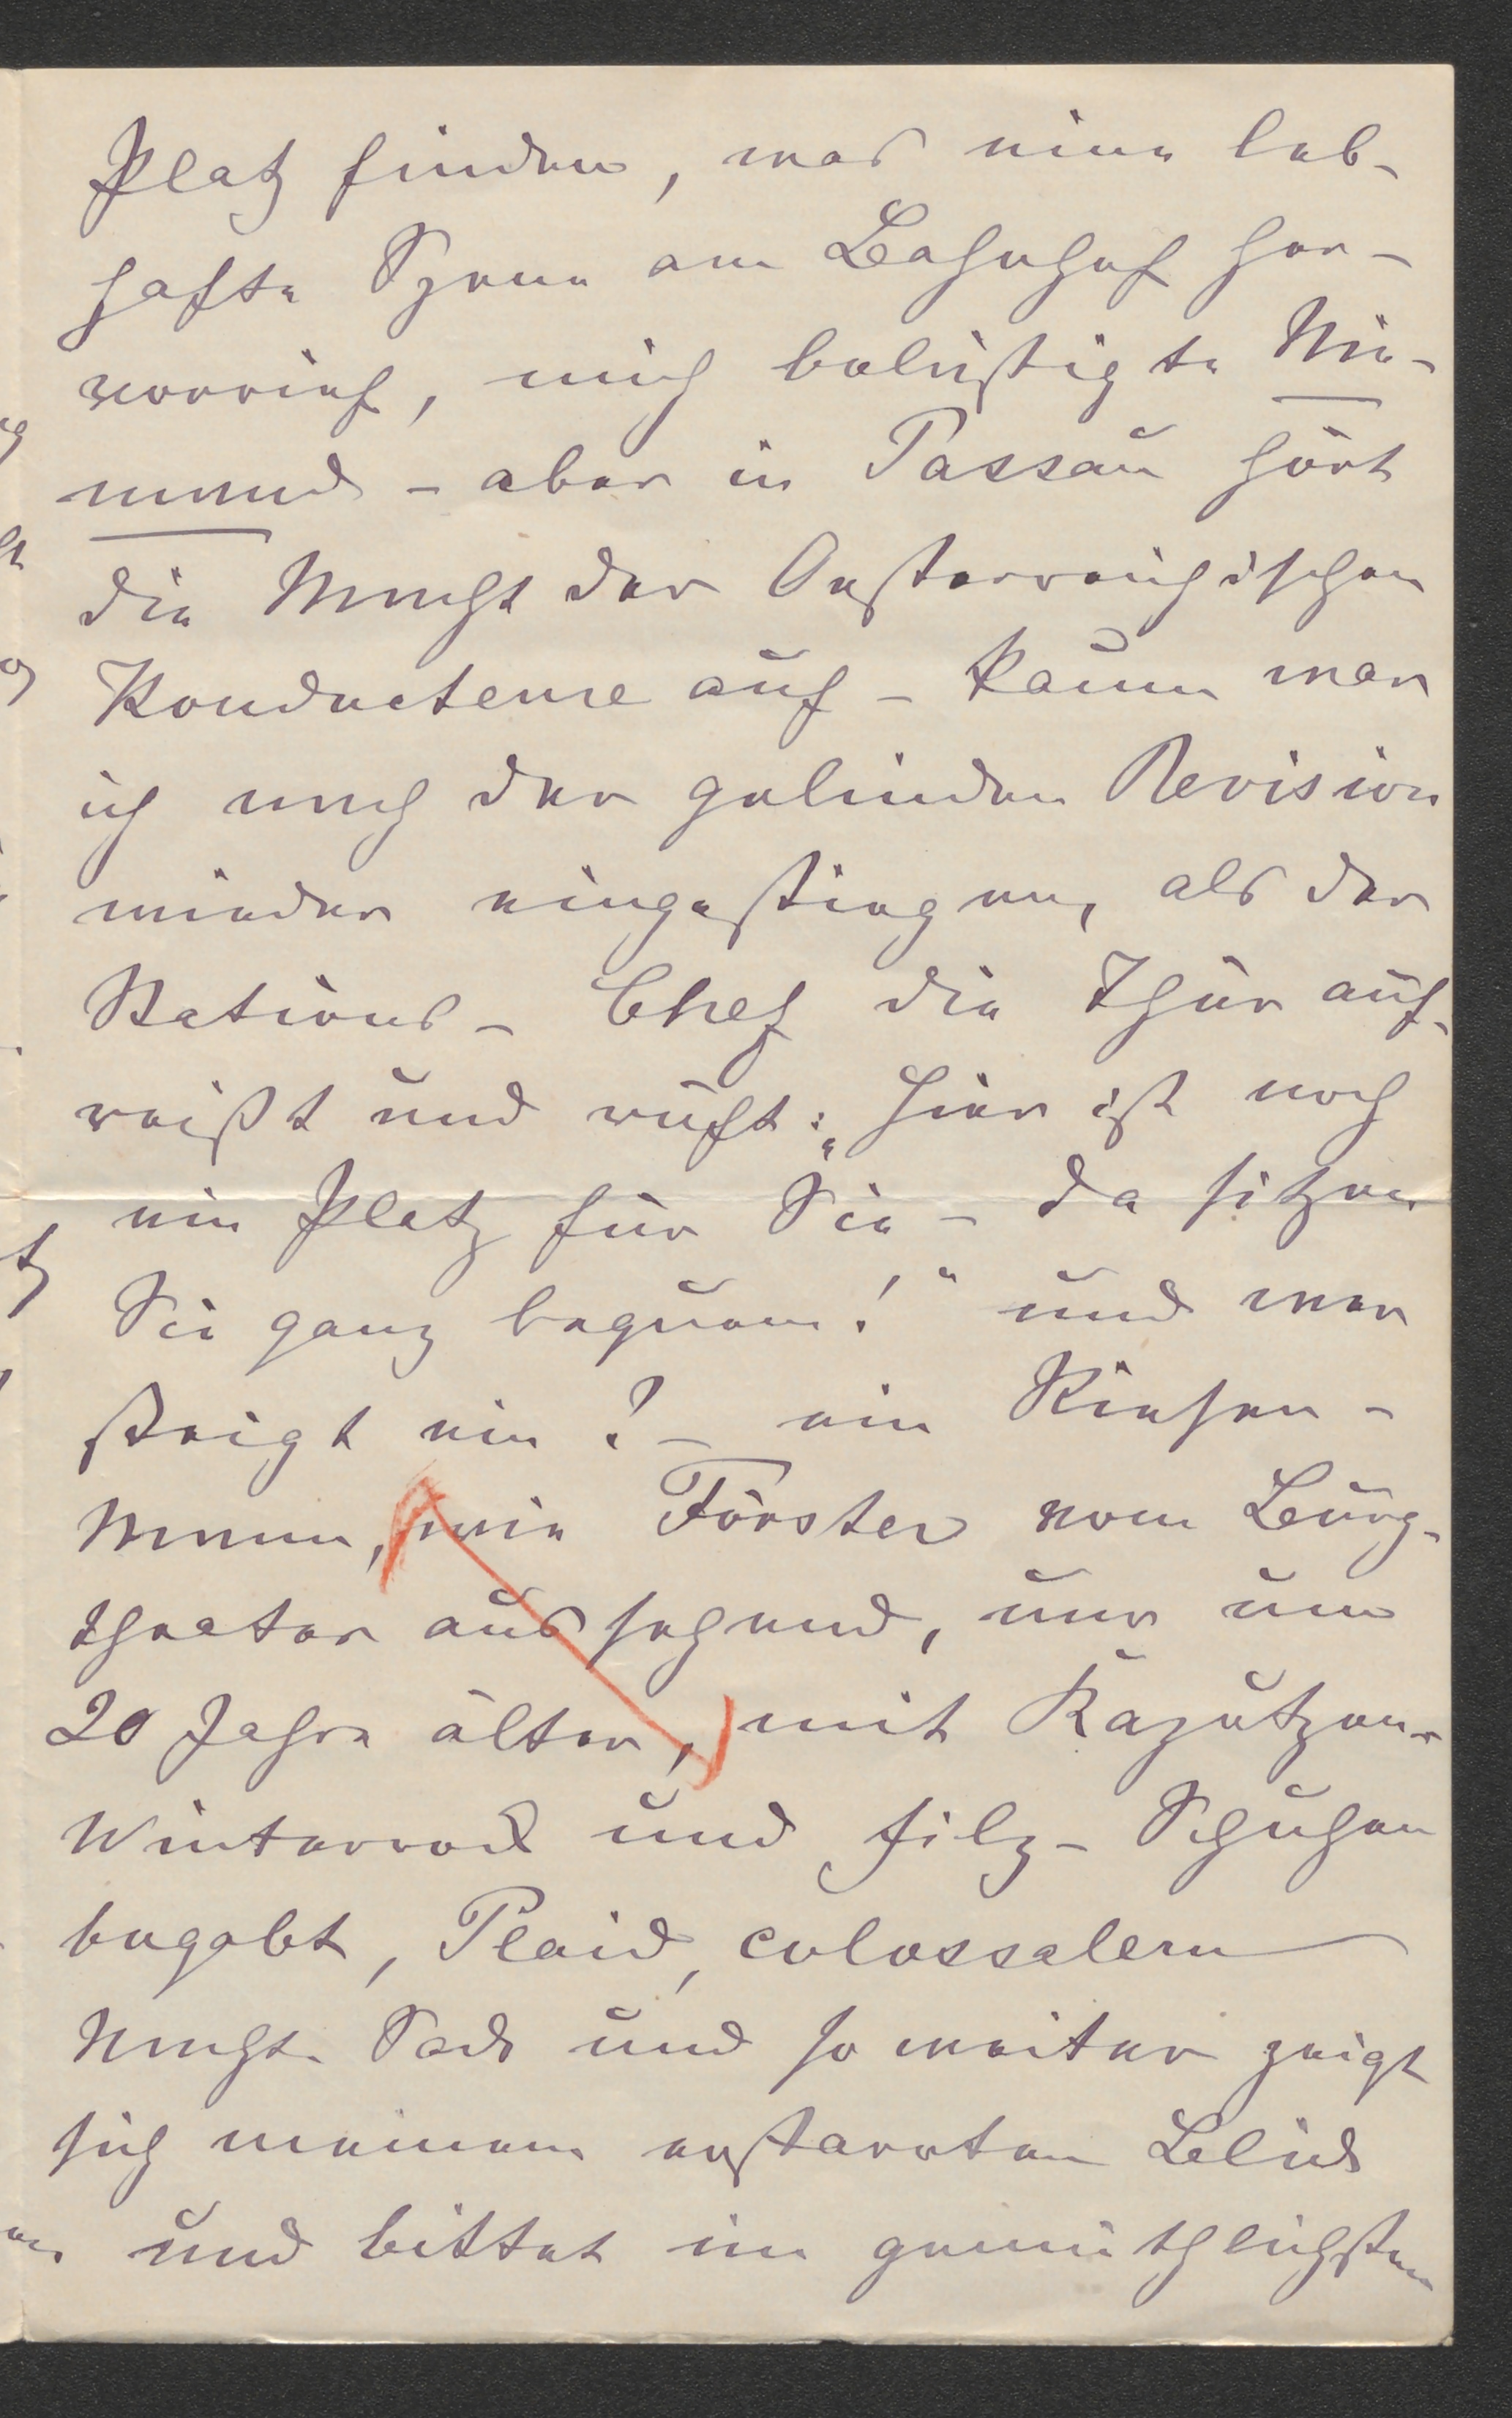 Platz finden, was eine leb-
hafte Szene am Bahnhof her-
vorrief, mich belästigte Nie-
mand – aber in Passau hört
die Macht der Oesterreichischen
Konducteure auf – kaum war
ich nach der gelinden Revision
wieder eingestiegen, als der
Stations- Chef die Thür auf-
reißt und ruft: „Hier ist noch
ein Platz für Sie – da sitzen
Sie ganz bequem!“ und wer
steigt ein? – ein Riesen-
Mann, wie Förster vom Burg-
theater aussehend, nur um
20 Jahre älter, mit Kaputzen-
Winterrock und Filz- Schuhen
begabt, Plaid, colossalem
Nacht Sack und so weiter zeigt
sich meinem erstarrten Blick
und bittet im gemüthlichsten